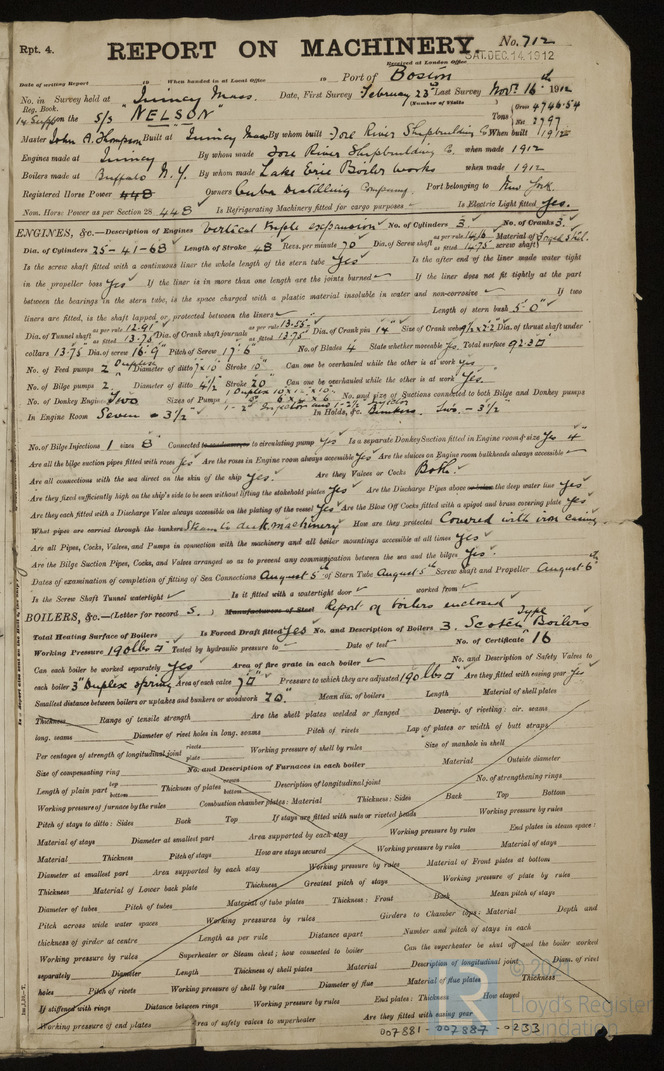 Rpt. 4.
REPORT ON MACHINERY.
No. 712
Received at London Office SAT. DEC. 14, 1912
Date of writing Report 19 When handed in at Local Office 19 Port of Boston
No. in Survey held at Quincy Mass. Date, First Survey February 23rd Last Survey Nov. 16th 1912
Reg. Book. (Number of Visits
14 Supp on the S/S "NELSON" Tons Gross 4746.54 Net 2797
Master John A. Thompson Built at Quincy Mass By whom built Fore River Shipbuilding Co When built 1912
Engines made at Quincy By whom made Fore River Shipbuilding Co. when made 1912
Boilers made at Buffalo N.Y. By whom made Lake Erie Boiler Works when made 1912
Registered Horse Power 448 Owners Cuba Distilling Company Port belonging to New York.
Nom. Horse Power as per Section 28 448 Is Refrigerating Machinery fitted for cargo purposes Is Electric Light fitted Yes.
ENGINES, &c.—Description of Engines Vertical triple expansion No. of Cylinders 3 No. of Cranks 3.
Dia. of Cylinders 25-41-68 Length of Stroke 48 Revs. per minute 70 Dia. of Screw shaft as per rule 14.16 as fitted 14.75 Material of screw shaft Forged Steel.
Is the screw shaft fitted with a continuous liner the whole length of the stern tube Yes Is the after end of the liner made water tight
in the propeller boss Yes If the liner is in more than one length are the joints burned If the liner does not fit tightly at the part
between the bearings in the stern tube, is the space charged with a plastic material insoluble in water and non-corrosive If two
liners are fitted, is the shaft lapped or protected between the liners Length of stern bush 5'-0"
Dia. of Tunnel shaft as per rule 12.91 as fitted 13.75 Dia. of Crank shaft journals as per rule 13.55 as fitted 13.75 Dia. of Crank pin 14 Size of Crank webs 9½x22 Dia. of thrust shaft under
collars 13.75 Dia. of screw 16'-9" Pitch of Screw 17'-6" No. of Blades 4 State whether moveable Yes. Total surface 92.3□
No. of Feed pumps 2 Duplex Diameter of ditto 7x10 Stroke 10" Can one be overhauled while the other is at work Yes
No. of Bilge pumps 2 Diameter of ditto 4½ Stroke 20" Can one be overhauled while the other is at work Yes.
No. of Donkey Engines Two Sizes of Pumps 1 Duplex 10x12x10 No. and size of Suctions connected to both Bilge and Donkey pumps
In Engine Room Seven - 3½" In Holds, &c. Bunkers. Two. - 3½"
No. of Bilge Injections 1 sizes 8" Connected to circulating pump Yes Is a separate Donkey Suction fitted in Engine room & size Yes 4"
Are all the bilge suction pipes fitted with roses Yes Are the roses in Engine room always accessible Yes Are the sluices on Engine room bulkheads always accessible
Are all connections with the sea direct on the skin of the ship Yes. Are they Valves or Cocks Both.
Are they fixed sufficiently high on the ship's side to be seen without lifting the stokehold plates Yes Are the Discharge Pipes above the deep water line Yes
Are they each fitted with a Discharge Valve always accessible on the plating of the vessel Yes Are the Blow Off Cocks fitted with a spigot and brass covering plate Yes
What pipes are carried through the bunkers Steam to deck machinery How are they protected Covered with iron casing.
Are all Pipes, Cocks, Valves, and Pumps in connection with the machinery and all boiler mountings accessible at all times Yes
Are the Bilge Suction Pipes, Cocks, and Valves arranged so as to prevent any communication between the sea and the bilges Yes.
Dates of examination of completion of fitting of Sea Connections August 5th of Stern Tube August 5th Screw shaft and Propeller August 6th
Is the Screw Shaft Tunnel watertight Is it fitted with a watertight door worked from
BOILERS, &c.—(Letter for record S.) Manufacturers of Steel Report of boilers enclosed
Total Heating Surface of Boilers Is Forced Draft fitted Yes No. and Description of Boilers 3. Scotch Type Boilers
Working Pressure 190 lbs □ Tested by hydraulic pressure to Date of test No. of Certificate 16
Can each boiler be worked separately Yes Area of fire grate in each boiler No. and Description of Safety Valves to
each boiler 3" Duplex spring Area of each valve 7□ Pressure to which they are adjusted 190 lbs □ Are they fitted with easing gear Yes
Smallest distance between boilers or uptakes and bunkers or woodwork 20." Mean dia. of boilers Length Material of shell plates
Thickness Range of tensile strength Are the shell plates welded or flanged Descrip. of riveting: cir. seams
long. seams Diameter of rivet holes in long. seams Pitch of rivets Lap of plates or width of butt straps
Per centages of strength of longitudinal joint rivets plate Working pressure of shell by rules Size of manhole in shell
Size of compensating ring No. and Description of Furnaces in each boiler Material Outside diameter
Length of plain part top bottom Thickness of plates crown bottom Description of longitudinal joint No. of strengthening rings
Working pressure of furnace by the rules Combustion chamber plates: Material Thickness: Sides Back Top Bottom
Pitch of stays to ditto: Sides Back Top If stays are fitted with nuts or riveted heads Working pressure by rules
Material of stays Diameter at smallest part Area supported by each stay Working pressure by rules End plates in steam space:
Material Thickness Pitch of stays How are stays secured Working pressure by rules Material of stays
Diameter at smallest part Area supported by each stay Working pressure by rules Material of Front plates at bottom
Thickness Material of Lower back plate Thickness Greatest pitch of stays Working pressure of plate by rules
Diameter of tubes Pitch of tubes Material of tube plates Thickness: Front Back Mean pitch of stays
Pitch across wide water spaces Working pressures by rules Girders to Chamber tops: Material Depth and
thickness of girder at centre Length as per rule Distance apart Number and pitch of stays in each
Working pressure by rules Superheater or Steam chest; how connected to boiler Can the superheater be shut off and the boiler worked
separately Diameter Length Thickness of shell plates Material Description of longitudinal joint Diam. of rivet
holes Pitch of rivets Working pressure of shell by rules Diameter of flue Material of flue plates Thickness
If stiffened with rings Distance between rings Working pressure by rules End plates: Thickness How stayed
Working pressure of end plates Area of safety valves to superheater Are they fitted with easing gear
007881-007887-0233
© 2021
Lloyd's Register
Foundation